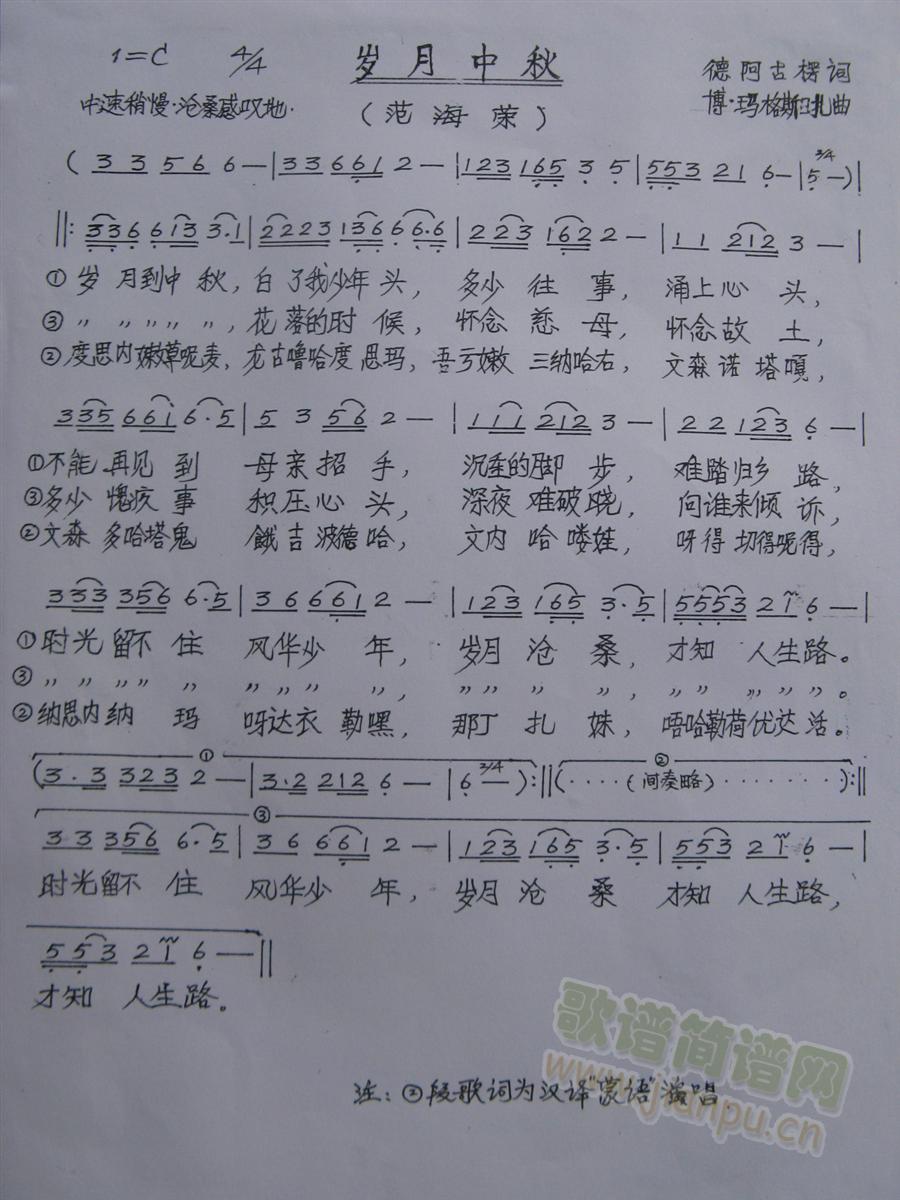 1=C 4/4 岁月中秋 德阿古楞词
中速稍慢·沧桑感叹地· (范海荣) 博·玛格斯扎曲
( 3 3 5 6 6 — | 3 3 6 6 1 2 — | 1 2 3 1 6 5 3 5 | 5 5 3 2 1 6 — | 3/4 5 — ) |
‖: 3 3 6 6 1 3 3·1 | 2 2 2 3 1 3 6 6 6·6 | 2 2 3 1 6 2 2 — | 1 1 2 1 2 3 — |
① 岁月到中秋,白了我少年头,多少往事,涌上心头,
③ 〃 〃 〃 〃 〃,花落的时候,怀念慈母,怀念故土,
② 度思内嫩尊呢麦,尤古噜哈度思玛,吾亏嫩三纳哈右,文森诺塔嘎,
3 3 5 6 6 1 6·5 | 5 3 5 6 2 — | 1 1 1 2 1 2 3 — | 2 2 1 2 3 6 — |
①不能再见到 母亲招手,沉重的脚步,难踏归乡路,
③多少愧疚事 积压心头,深夜难破晓,问谁来倾诉,
②文森多哈塔鬼 餓吉波德哈,文内哈喽娃,呀得切得呢得,
3 3 3 3 5 6 6·5 | 3 6 6 6 1 2 — | 1 2 3 1 6 5 3·5 | 5 5 5 3 2 1 6 — |
① 时光留不住 风华少年,岁月沧桑,才知人生路。
③ 〃 〃 〃 〃 〃 〃 〃 〃 〃,〃 〃 〃 〃,〃 〃 〃 〃 〃。
② 纳思内纳玛 呀达衣勒嘿,那丁扎妹,唔哈勒荷优达活。
① ②
(3·3 3 2 3 2 — | 3·2 2 1 2 6 — | 3/4 6 — ):‖(·····(间奏略)······):‖
③
3 3 3 5 6 6·5 | 3 6 6 6 1 2 — | 1 2 3 1 6 5 3·5 | 5 5 3 2 1 6 — |
时光留不住 风华少年,岁月沧桑 才知人生路,
5 5 3 2 1 6 — ‖
才知人生路。
注:②段歌词为汉译"蒙语"演唱
歌谱简谱网
www.jianpu.cn